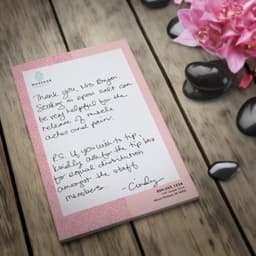 MASSAGE
Thank you, Ms. Bryan
Soaking in epsom salt can
be very helpful for the
release of muscle
aches and pain.
P.S. If you wish to tip,
kindly ask for the tip box
for equal distribution
amongst the staff
members.
-Cindy-